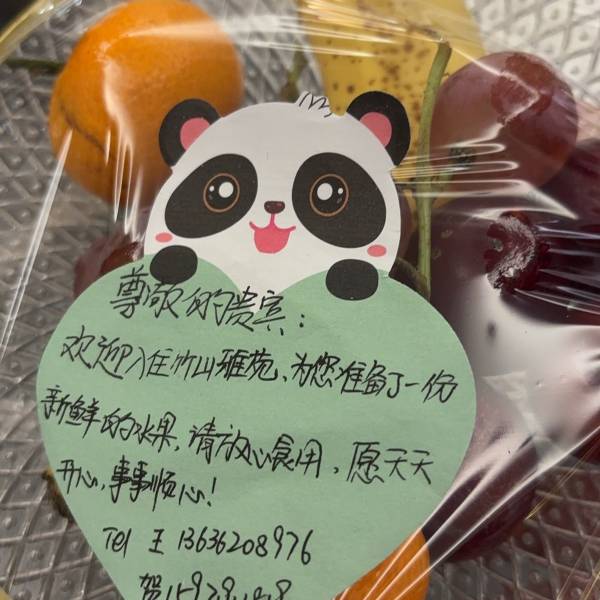 尊敬的贵宾：
欢迎入住竹山雅苑、为您准备了一份
新鲜的水果，请放心食用，愿天天
开心，事事顺心！
Tel 王 13636208976
贺